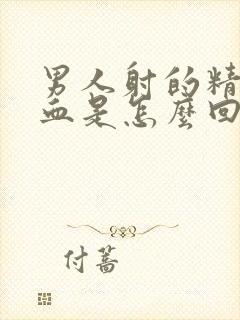 男人射的精
血是怎麼回
付蔷